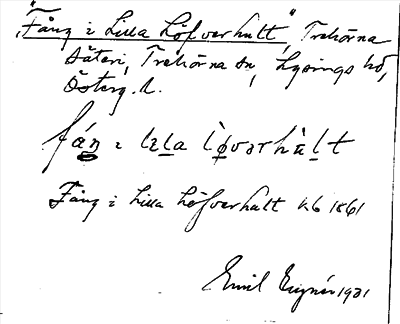 "Fång i Lilla Löfverhult", Trehörna
Säteri, Trehörna sn, Lysings hd,
Österg. l.
fáŋ ɩ lɩla lø̀vərhùlt
Fång i Lilla Löfverhult kb 1861
Emil 1931